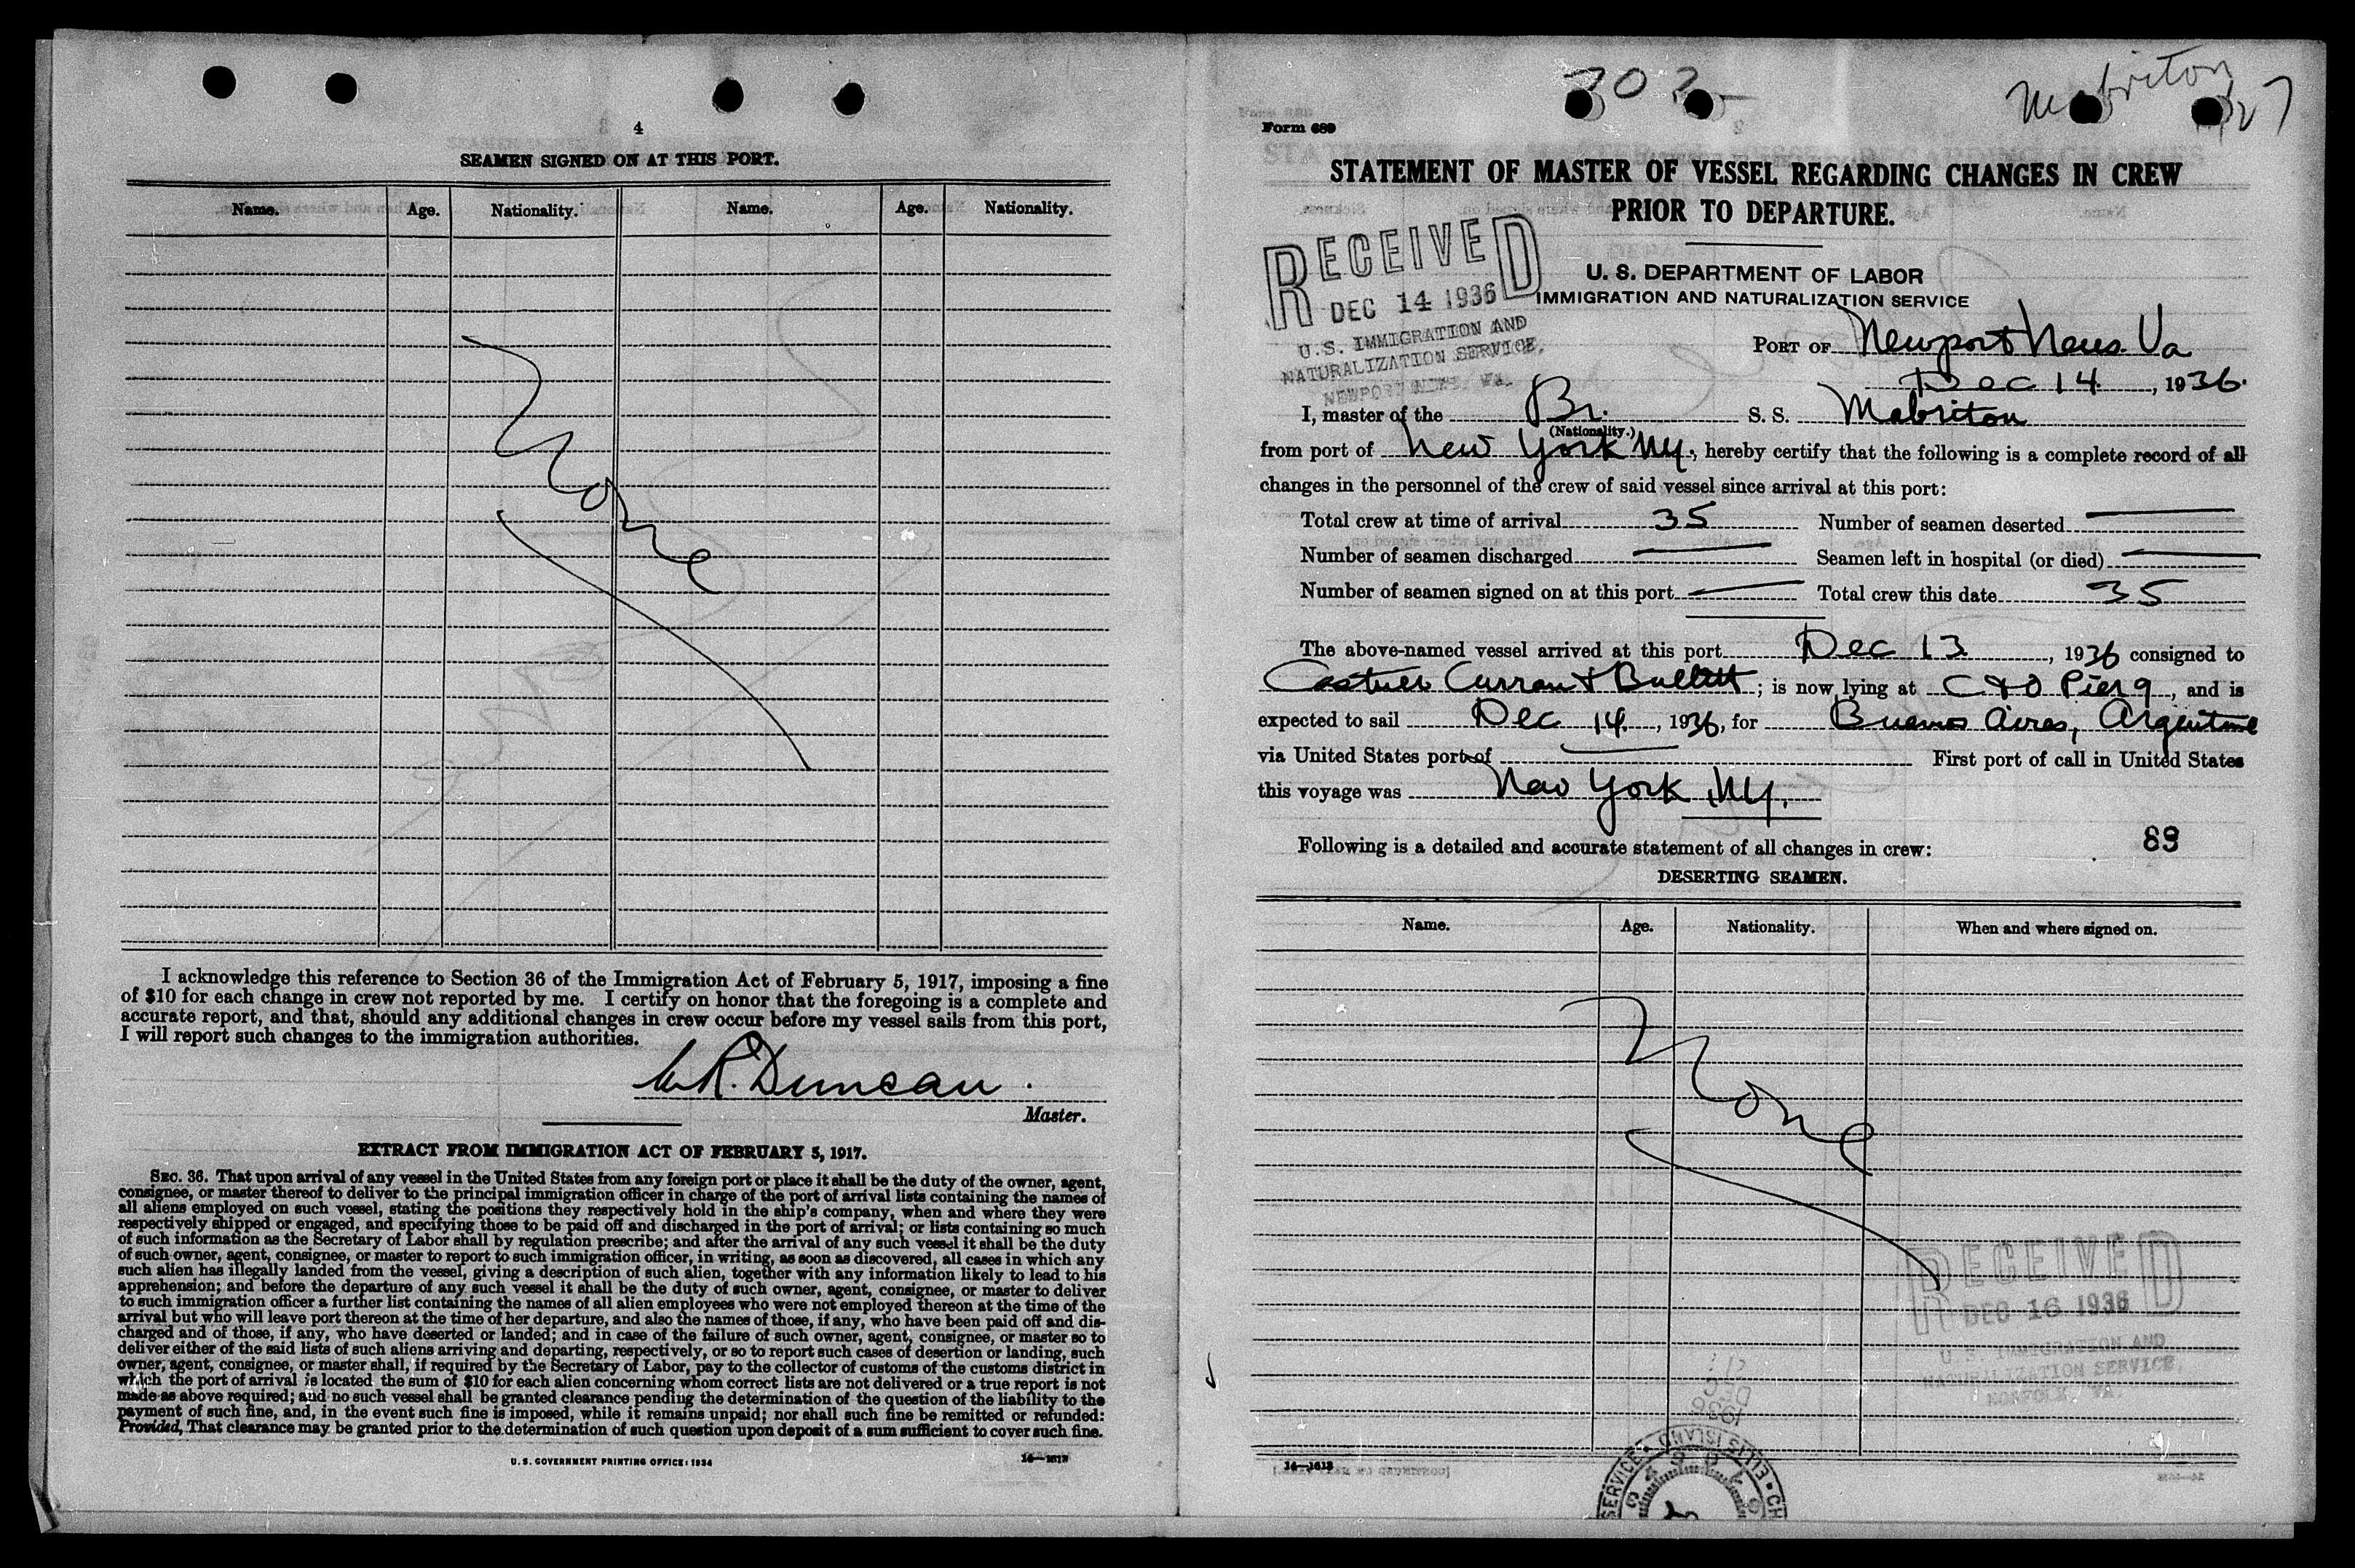 4
SEAMEN SIGNED ON AT THIS PORT.
Name. Age. Nationality. Name. Age. Nationality.
None
I acknowledge this reference to Section 36 of the Immigration Act of February 5, 1917, imposing a fine
of $10 for each change in crew not reported by me. I certify on honor that the foregoing is a complete and
accurate report, and that, should any additional changes in crew occur before my vessel sails from this port,
I will report such changes to the immigration authorities.
R. Duncan
Master.
EXTRACT FROM IMMIGRATION ACT OF FEBRUARY 5, 1917.
SEC. 36. That upon arrival of any vessel in the United States from any foreign port or place it shall be the duty of the owner, agent,
consignee, or master thereof to deliver to the principal immigration officer in charge of the port of arrival lists containing the names of
all aliens employed on such vessel, stating the positions they respectively hold in the ship's company, when and where they were
respectively shipped or engaged, and specifying those to be paid off and discharged in the port of arrival; or lists containing so much
of such information as the Secretary of Labor shall by regulation prescribe; and after the arrival of any such vessel it shall be the duty
of such owner, agent, consignee, or master to report to such immigration officer, in writing, as soon as discovered, all cases in which any
such alien has illegally landed from the vessel, giving a description of such alien, together with any information likely to lead to his
apprehension; and before the departure of any such vessel it shall be the duty of such owner, agent, consignee, or master to deliver
to such immigration officer a further list containing the names of all alien employees who were not employed thereon at the time of the
arrival but who will leave port thereon at the time of her departure, and also the names of those, if any, who have been paid off and dis-
charged and of those, if any, who have deserted or landed; and in case of the failure of such owner, agent, consignee, or master so to
deliver either of the said lists of such aliens arriving and departing, respectively, or so to report such cases of desertion or landing, such
owner, agent, consignee, or master shall, if required by the Secretary of Labor, pay to the collector of customs of the customs district in
which the port of arrival is located the sum of $10 for each alien concerning whom correct lists are not delivered or a true report is not
made as above required; and no such vessel shall be granted clearance pending the determination of the question of the liability to the
payment of such fine, and, in the event such fine is imposed, while it remains unpaid; nor shall such fine be remitted or refunded:
Provided, That clearance may be granted prior to the determination of such question upon deposit of a sum sufficient to cover such fine.
U. S. GOVERNMENT PRINTING OFFICE: 1934 14—1613
Mabriton
Form 689
STATEMENT OF MASTER OF VESSEL REGARDING CHANGES IN CREW
PRIOR TO DEPARTURE.
RECEIVED
DEC 14 1936
U.S. IMMIGRATION AND
NATURALIZATION SERVICE,
NEWPORT NEWS, VA.
U. S. DEPARTMENT OF LABOR
IMMIGRATION AND NATURALIZATION SERVICE
PORT OF Newport News. Va
Dec 14, 1936.
I, master of the Br. S. S. Mabriton
(Nationality.)
from port of New York NY., hereby certify that the following is a complete record of all
changes in the personnel of the crew of said vessel since arrival at this port:
Total crew at time of arrival 35 Number of seamen deserted —
Number of seamen discharged — Seamen left in hospital (or died) —
Number of seamen signed on at this port — Total crew this date 35
The above-named vessel arrived at this port Dec 13, 1936 consigned to
Castner Curran & Bullitt; is now lying at C & O Pier 9, and is
expected to sail Dec 14, 1936, for Buenos Aires, Argentine
via United States port of — First port of call in United States
this voyage was New York, NY.
89
Following is a detailed and accurate statement of all changes in crew:
DESERTING SEAMEN.
Name. Age. Nationality. When and where signed on.
None
RECEIVED
DEC 16 1936
U. S. IMMIGRATION AND
NATURALIZATION SERVICE,
NORFOLK, VA
14—1613
SERVICE • ELLIS ISLAND